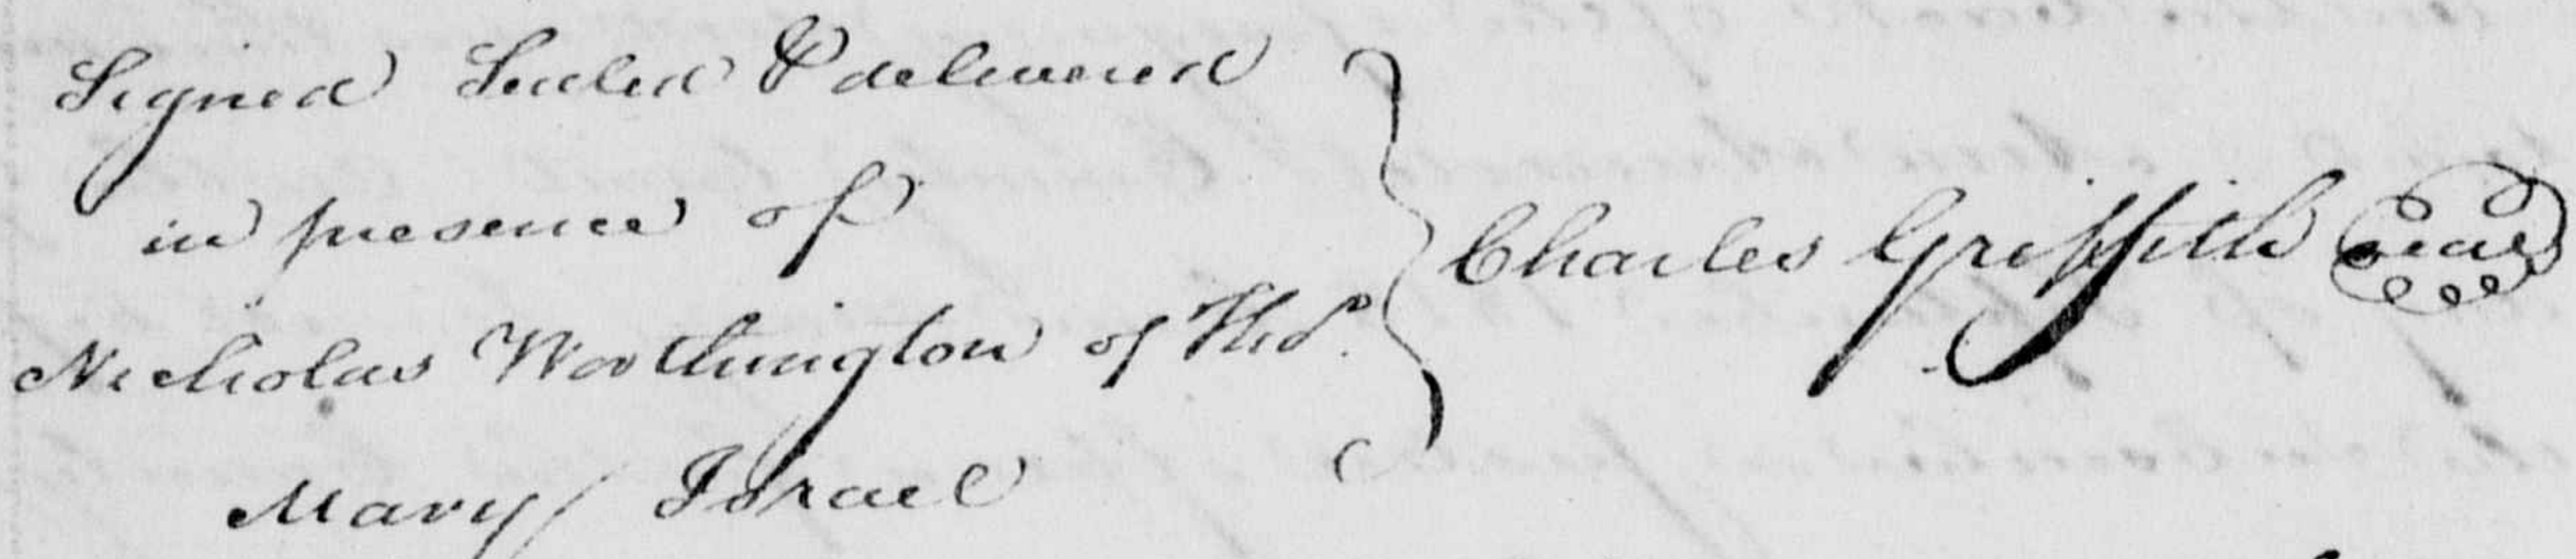 Signed Sealed & delivered
in presence of
Nicholas Worthington of Thos.
Mary Israel
Charles Griffith seal